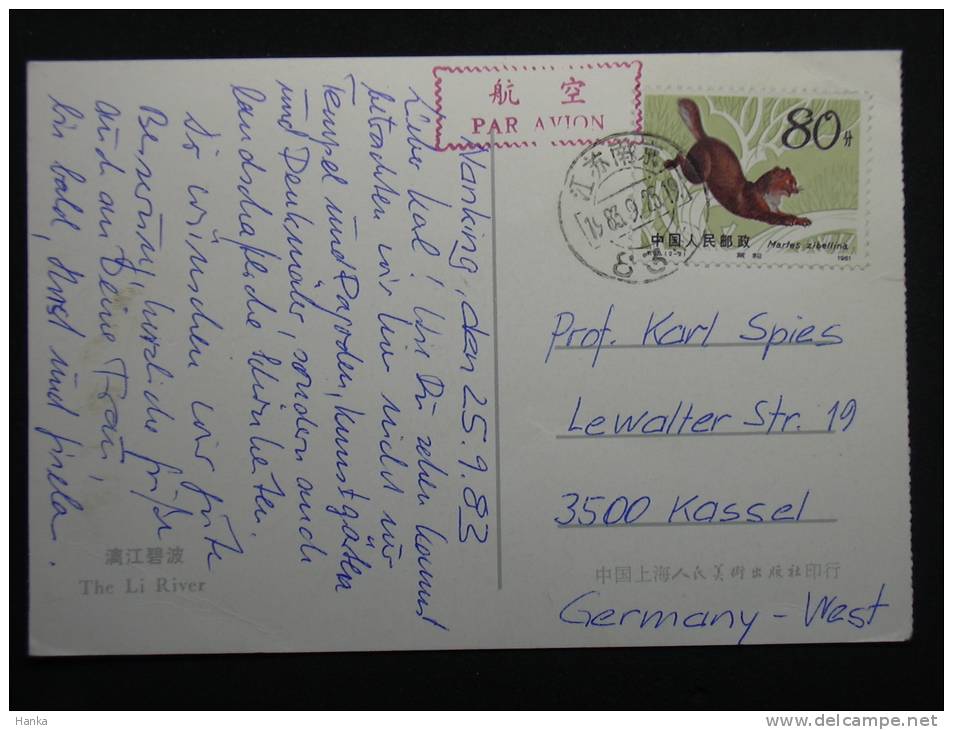 航空
PAR AVION
80分
中国人民邮政
Martes zibellina
1981
江苏南京
83.9.25.19
Nanking, den 25.9.83
Lieber Karl! Wie Du sehen kannst
betrachten wir hier nicht nur
Tempel und Pagoden, Kunstgärten
und Denkmäler, sondern auch
landschaftliche Schönheiten.
Dir wünschen wir gute
Besserung, herzliche Grüße
auch an Deine Frau,
bis bald, Horst und Gisela.
Prof. Karl Spies
Lewalter Str. 19
3500 Kassel
Germany-West
漓江碧波
The Li River
中国上海人民美術出版社印行
Hanka
delcampe.net